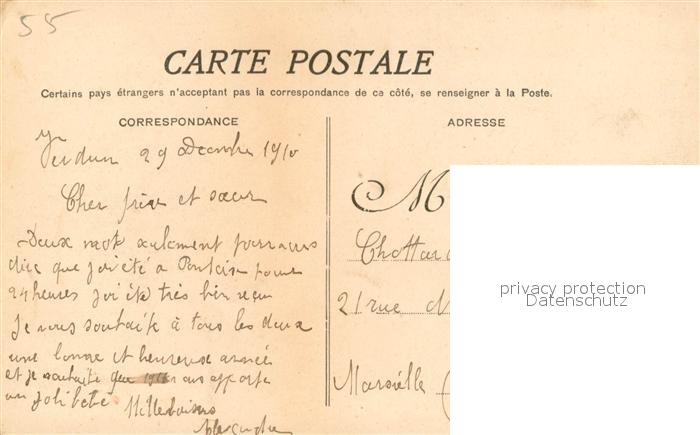 55
CARTE POSTALE
Certains pays étrangers n'acceptant pas la correspondance de ce côté, se renseigner à la Poste.
CORRESPONDANCE
Verdun 29 Decembre 1910
Cher frère et sœur
Deux mot seulement pour vous
dire que j'ai été a Pontoise pour
24 heures j'ai été très bien reçu
Je vous souhaite à tous les deux
une longue et heureuse année
et je souhaite que 1911 vous apporte
un joli bébé Mille baisers
Alexandre
ADRESSE
M
Chottar
21 rue
Marseille
privacy protection
Datenschutz